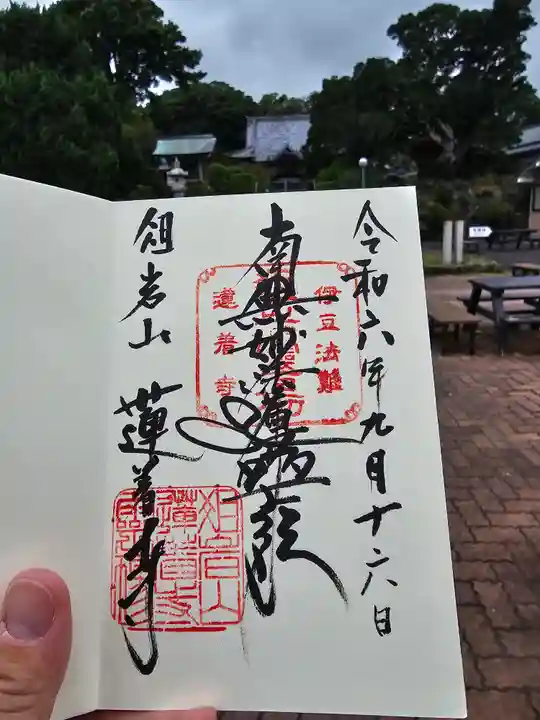 令和六年九月十六日
南無妙法蓮華経
伊豆法難
蓮着寺
俎岩山 蓮着寺